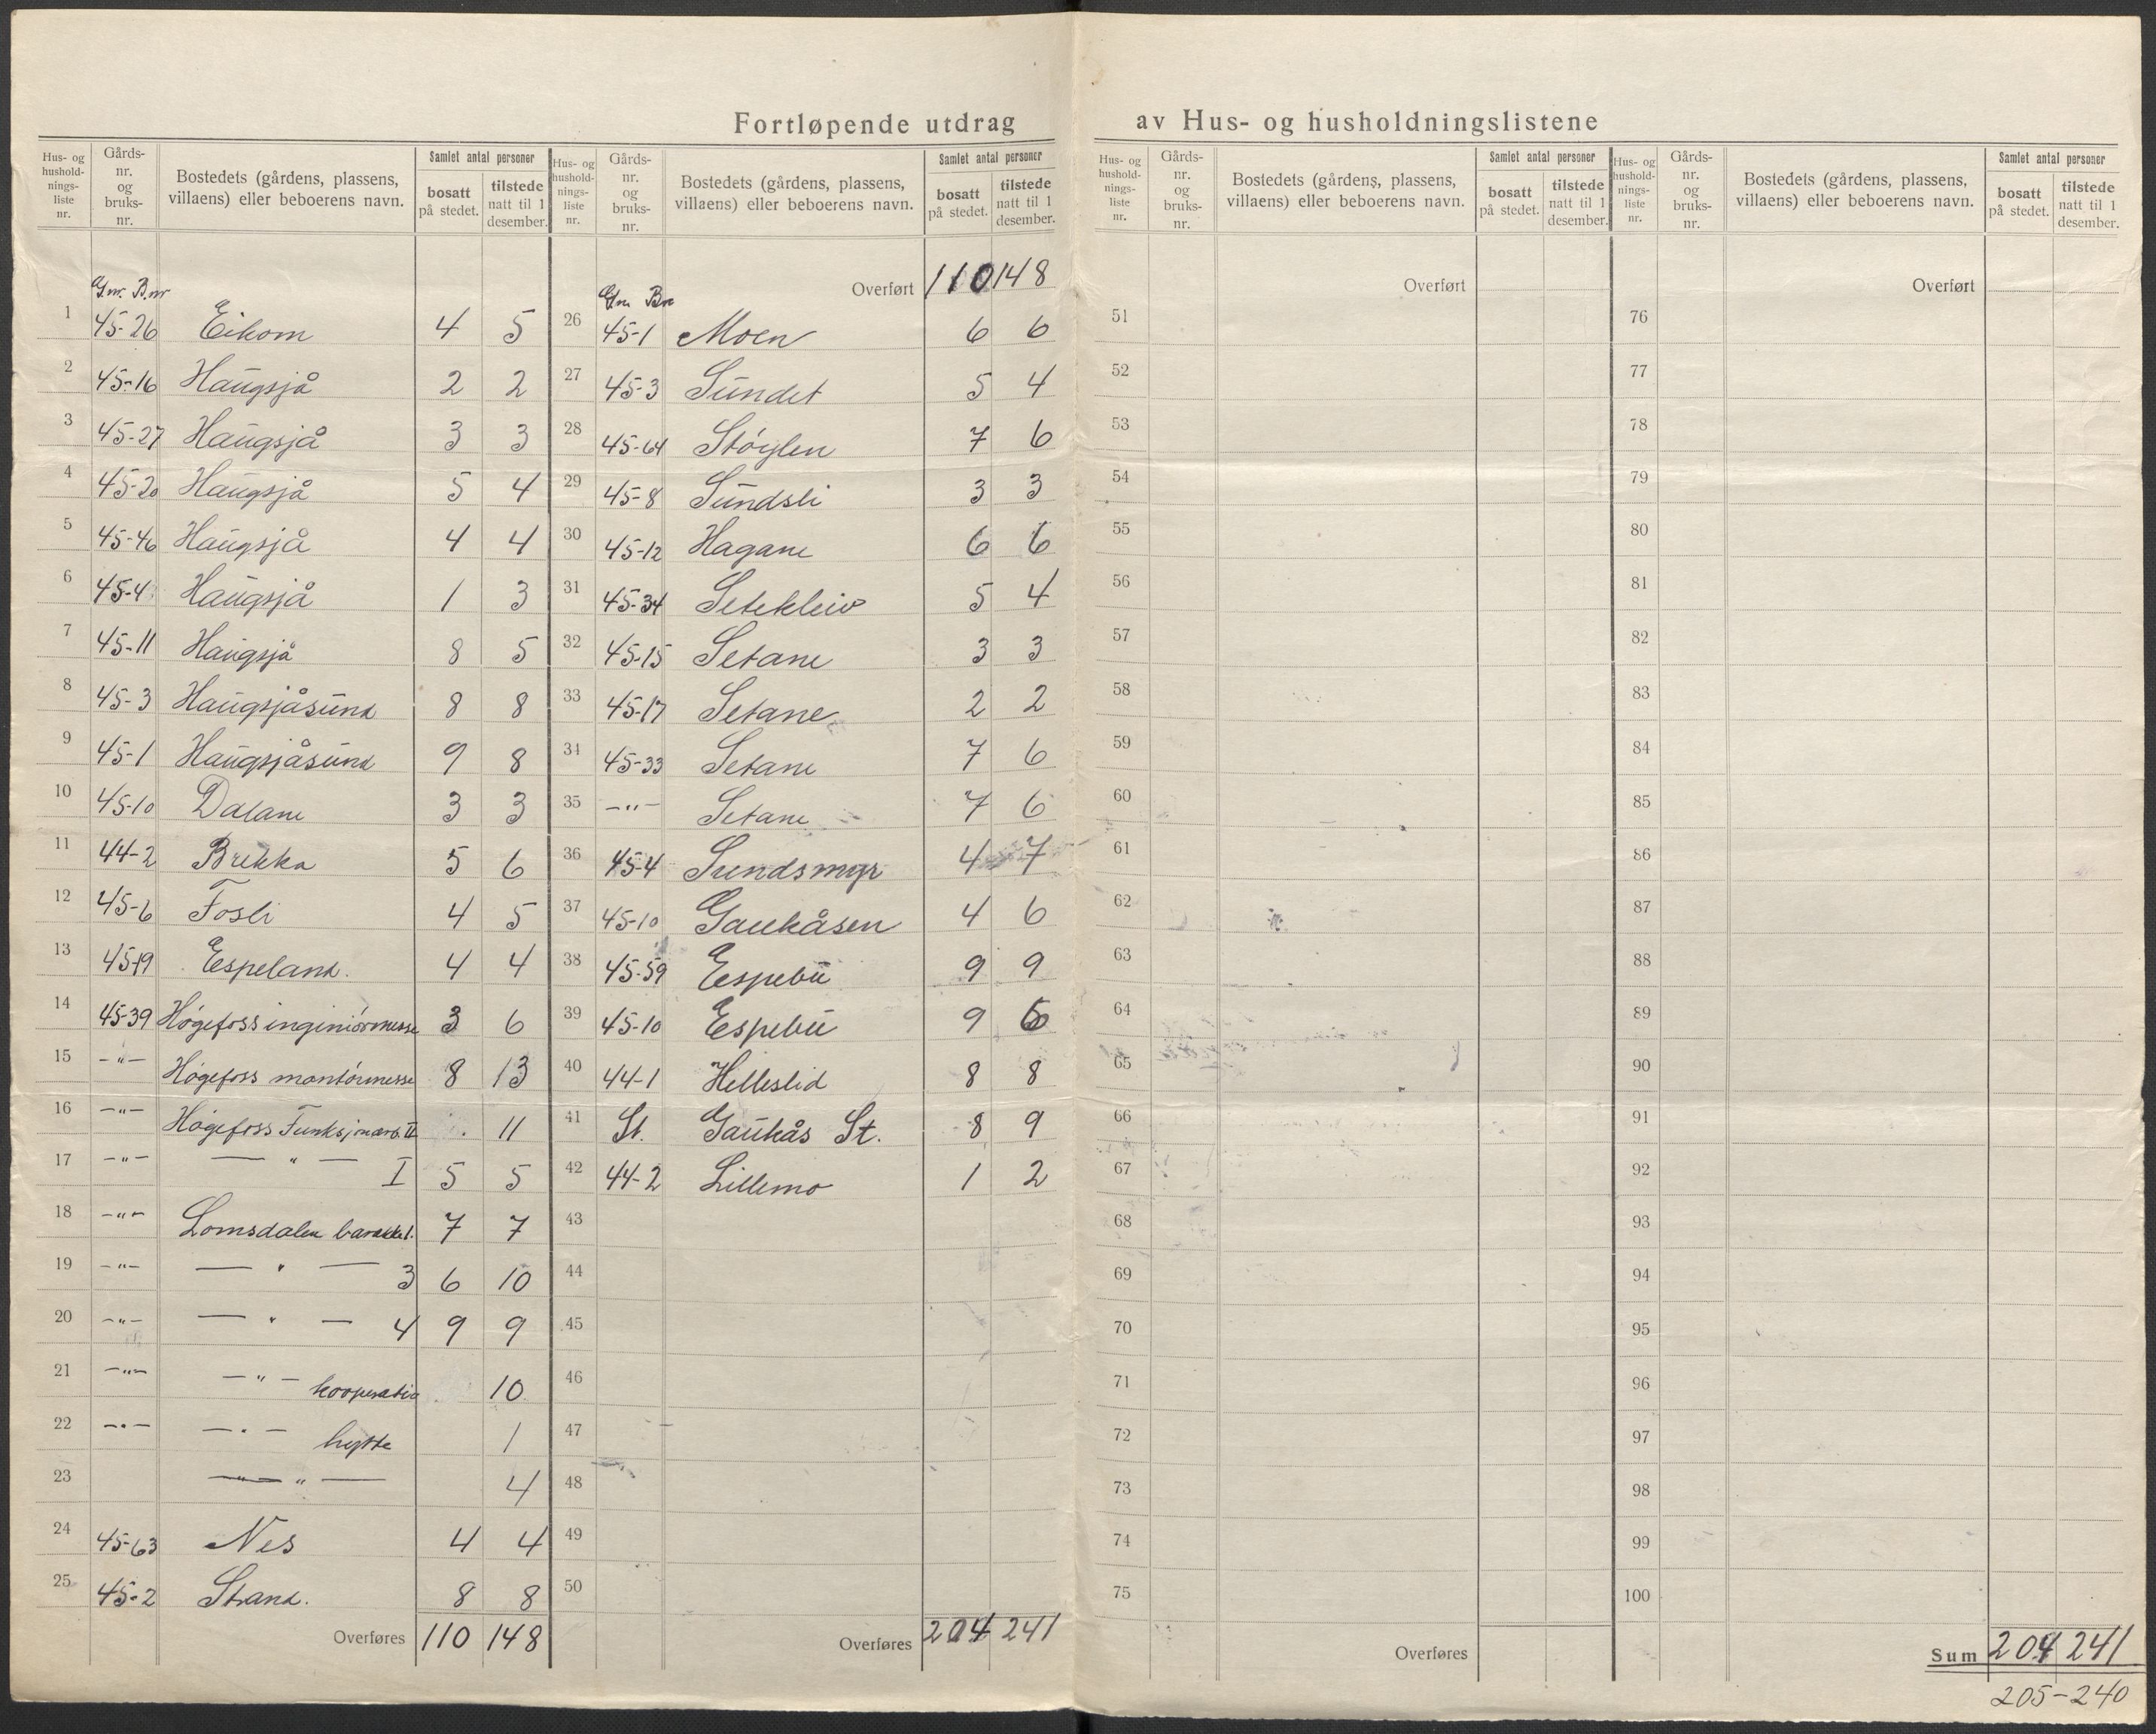 Fortløpende utdrag av Hus- og husholdningslistene
Hus- og hushold-nings-liste nr. | Gårds-nr. og bruks-nr. | Bostedets (gårdens, plassens, villaens) eller beboerens navn. | Samlet antal personer | bosatt på stedet. | tilstede natt til 1 desember.
Gnr. B.nr
1 45-26 Eikom 4 5
2 45-16 Haugsjå 2 2
3 45-27 Haugsjå 3 3
4 45-20 Haugsjå 5 4
5 45-46 Haugsjå 4 4
6 45-4 Haugsjå 1 3
7 45-11 Haugsjå 8 5
8 45-3 Haugsjåsund 8 8
9 45-1 Haugsjåsund 9 8
10 45-10 Dalane 3 3
11 44-2 Brekka 5 6
12 45-6 Fosli 4 5
13 45-19 Espeland. 4 4
14 45-39 Høgefoss ingeniörmesse 3 6
15 -"- Høgefoss montörmesse 8 13
16 -"- Høgefoss Funksjonærb. II 11
17 -"- — " — I 5 5
18 -"- Lomsdalen barakke 1. 7 7
19 -"- — " — 3 6 10
20 -"- — " — 4 9 9
21 -"- -"- kooperativ 10
22 -"- -"- hytte 1
23 — " — 4
24 45-63 Nes 4 4
25 45-2 Strand. 8 8
Overføres 110 148
Hus- og hushold-nings-liste nr. | Gårds-nr. og bruks-nr. | Bostedets (gårdens, plassens, villaens) eller beboerens navn. | Samlet antal personer | bosatt på stedet. | tilstede natt til 1 desember.
Overført 110 148
Gnr Bnr
26 45-1 Moen 6 6
27 45-3 Sundet 5 4
28 45-64 Stöylen 7 6
29 45-8 Sundsli 3 3
30 45-12 Hagane 6 6
31 45-34 Setekleiv 5 4
32 45-15 Setane 3 3
33 45-17 Setane 2 2
34 45-33 Setane 7 6
35 -"- Setane 7 6
36 45-4 Sundsmyr 4 7
37 45-10 Gaukåsen 4 6
38 45-59 Espebu 9 9
39 45-10 Espebu 9 6
40 44-1 Helleslid 8 8
41 St. Gaukås St. 8 9
42 44-2 Lillemo 1 2
43
44
45
46
47
48
49
50
Overføres 204 241
Hus- og hushold-nings-liste nr. | Gårds-nr. og bruks-nr. | Bostedets (gårdens, plassens, villaens) eller beboerens navn. | Samlet antal personer | bosatt på stedet. | tilstede natt til 1 desember.
Overført
51
52
53
54
55
56
57
58
59
60
61
62
63
64
65
66
67
68
69
70
71
72
73
74
75
Overføres
Hus- og hushold-nings-liste nr. | Gårds-nr. og bruks-nr. | Bostedets (gårdens, plassens, villaens) eller beboerens navn. | Samlet antal personer | bosatt på stedet. | tilstede natt til 1 desember.
Overført
76
77
78
79
80
81
82
83
84
85
86
87
88
89
90
91
92
93
94
95
96
97
98
99
100
Sum 204 241
205-240